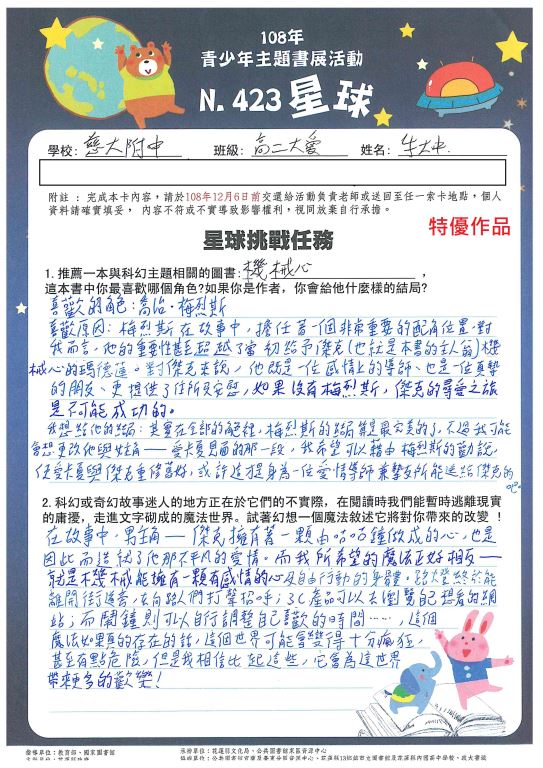 108年
青少年主題書展活動
N. 423 星球
學校: 慈大附中 班級: 高二大愛 姓名: 牛大中
附註：完成本卡內容，請於108年12月6日前交還給活動負責老師或送回至任一索卡地點，個人
資料請確實填妥， 內容不符或不實導致影響權利，視同放棄自行承擔。
特優作品
星球挑戰任務
1. 推薦一本與科幻主題相關的圖書: 機械心 ，
這本書中你最喜歡哪個角色?如果你是作者，你會給他什麼樣的結局?
喜歡的角色：喬治·梅烈斯
喜歡原因：梅烈斯在故事中，擔任著一個非常重要的配角位置，對
我而言，他的重要性甚至超越了當初給予傑克(也就是本書的主人翁)機
械心的瑪德蓮。對傑克來說，他既是一位感情上的導師、也是一位真摯
的朋友、更提供了住所及安慰，如果沒有梅烈斯，傑克的尋愛之旅
是不可能成功的。
我想給他的結局：其實在全部的旅程，梅烈斯的結局算是最完美的了，不過我可能
會想更改他與姑肯——愛卡夏見面的那一段，我希望可以藉由梅烈斯的勸說，
使愛卡夏與傑克重修舊好，或許這才是身為一位愛情導師兼摯友所能送給傑克的
吧。
2. 科幻或奇幻故事迷人的地方正在於它們的不實際，在閱讀時我們能暫時逃離現實
的庸擾，走進文字砌成的魔法世界。試著幻想一個魔法敘述它將對你帶來的改變！
在故事中，男主角——傑克擁有著一顆由咕咕鐘做成的心，也是
因此而造就了他那不平凡的愛情。而我所希望的魔法正好相反——
就是不機械能擁有一顆有感情的心及自由行動的身體。路燈終於能
離開街邊，去向路人們打聲招呼；3C產品可以去瀏覽自己想看的網
站；而鬧鐘則可以自行調整自己喜歡的時間……，這個
魔法如果真的存在的話，這個世界可能會變得十分瘋狂，
甚至有點危險，但是我相信比起這些，它會為這世界
帶來更多的歡樂！
指導單位：教育部、國家圖書館
承辦單位：花蓮縣文化局、公共圖書館東區資源中心